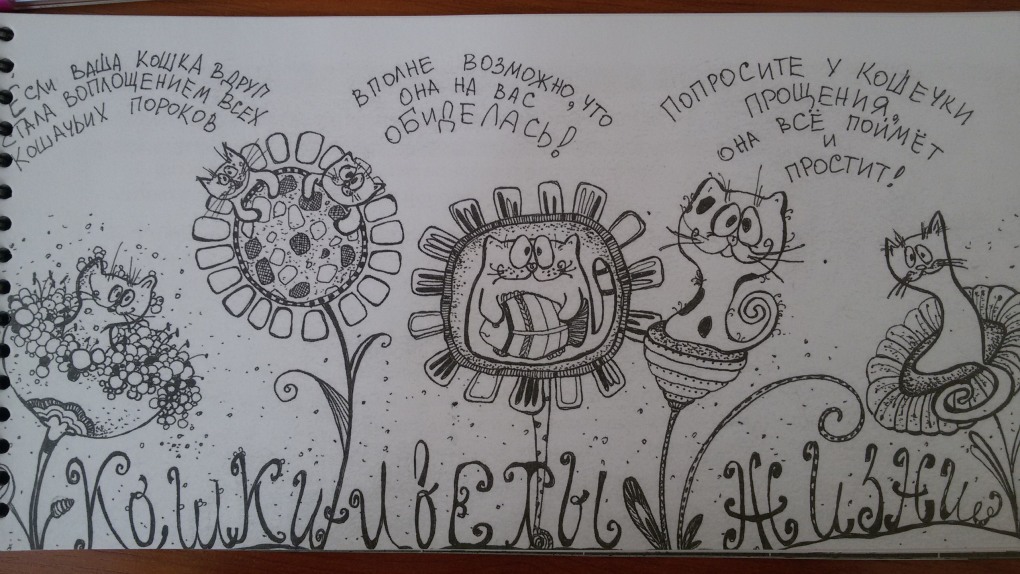 Если ваша кошка вдруг
стала воплощением всех
кошачьих пороков
вполне возможно, что
она на вас
обиделась!
Попросите у кошечки
прощения,
она всё поймёт
и
простит!
Кошки цветы жизни